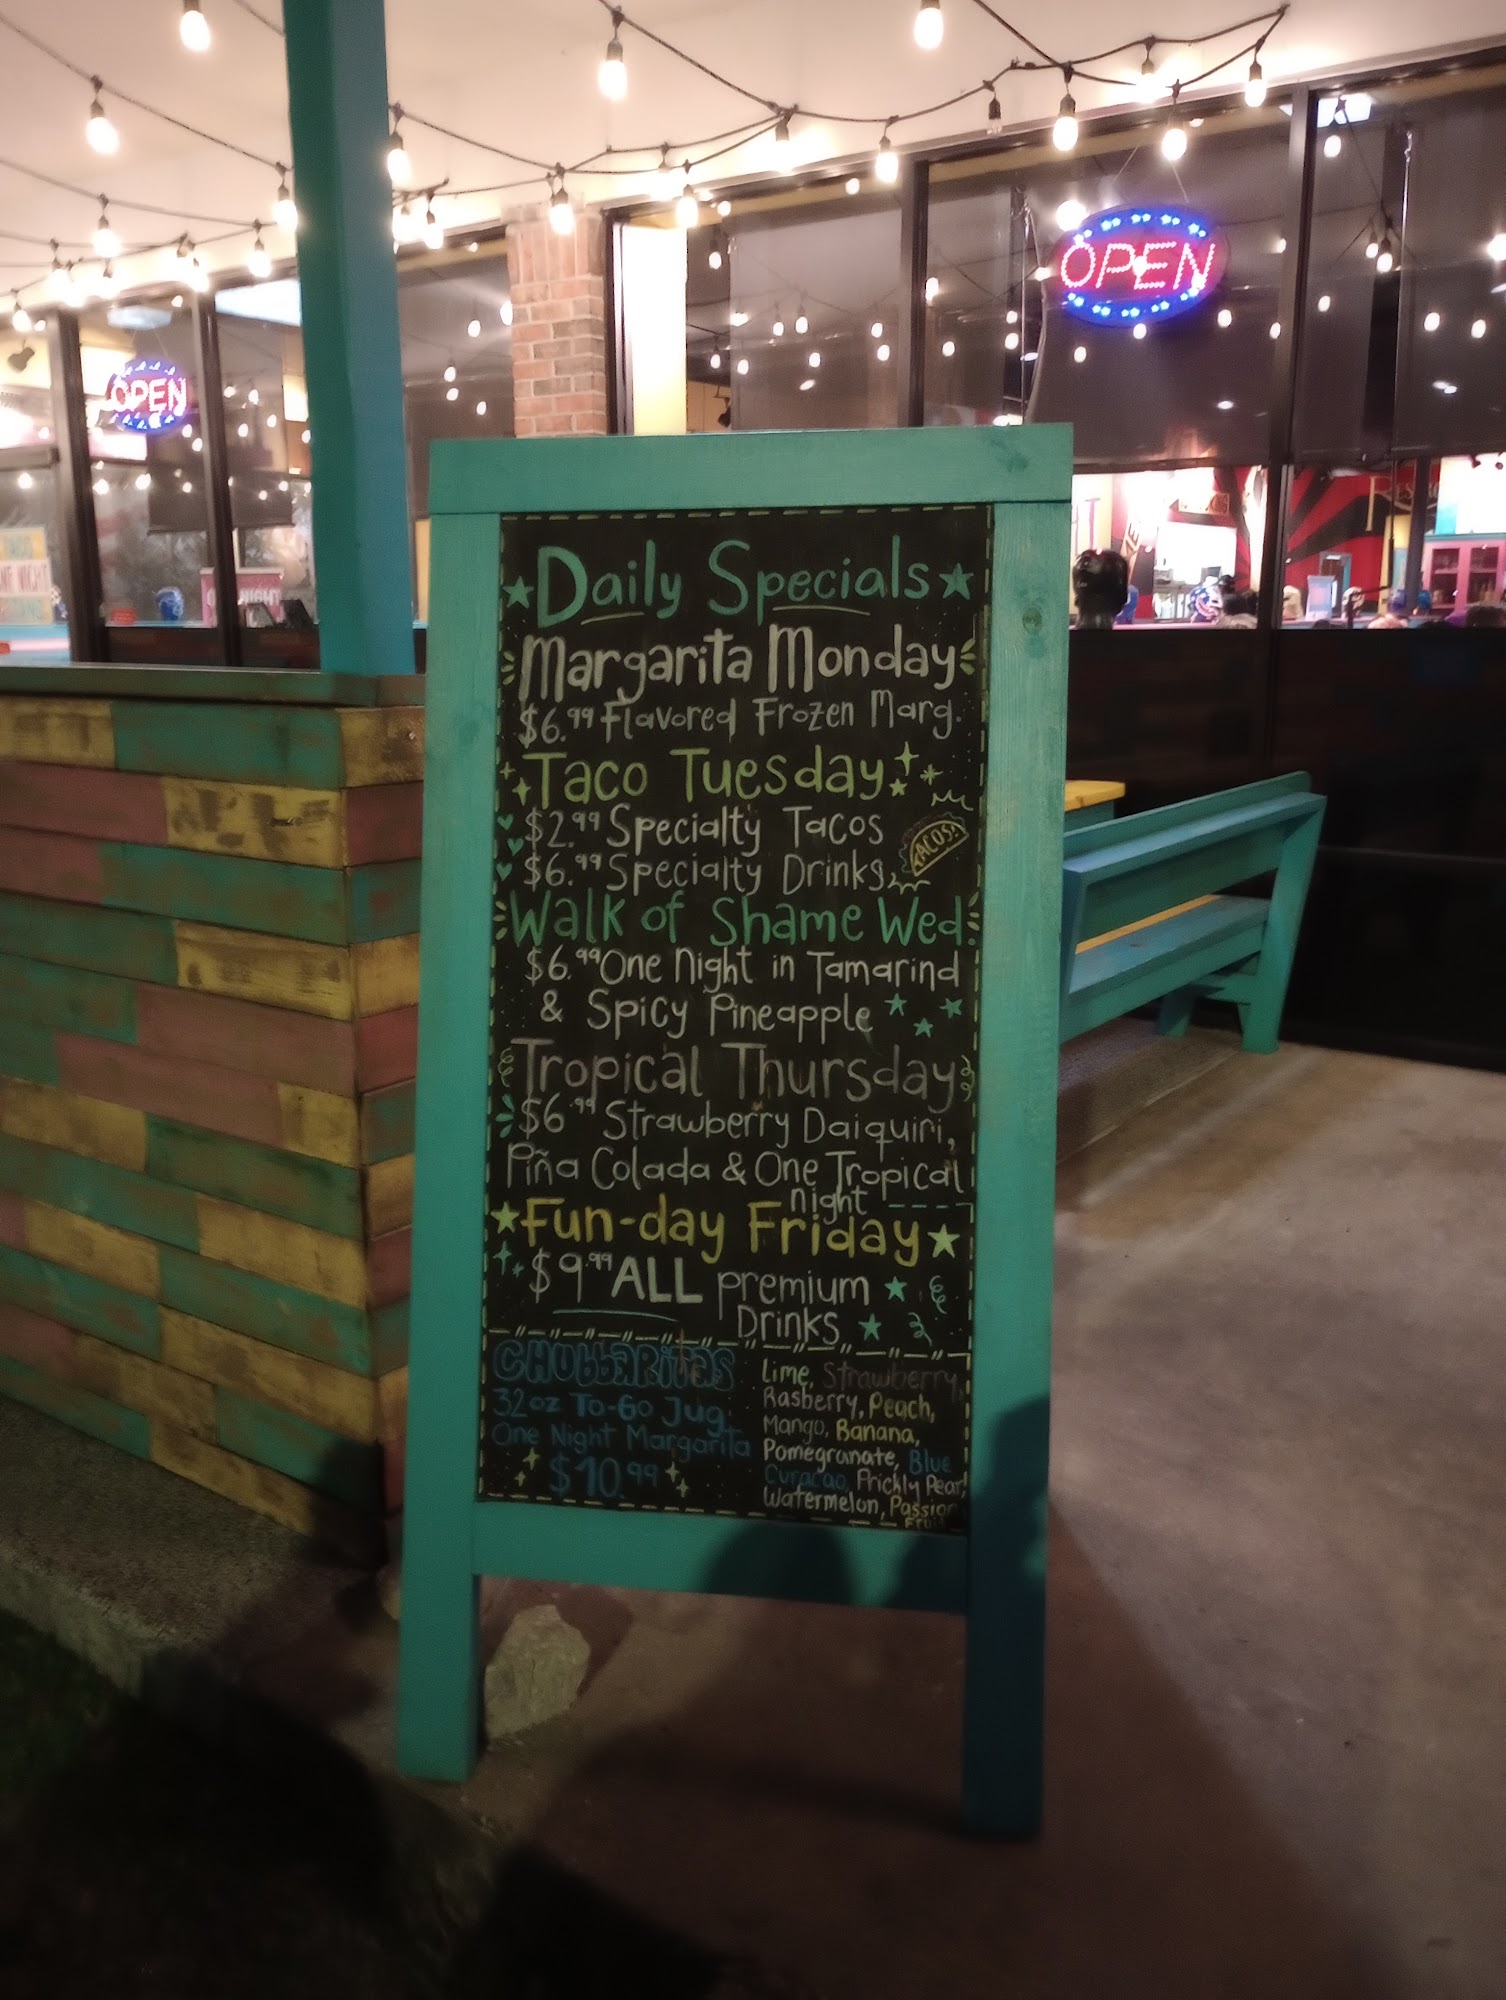 OPEN
OPEN
Daily Specials
Margarita Monday
$6.99 Flavored Frozen Marg.
Taco Tuesday
$2.99 Specialty Tacos
$6.99 Specialty Drinks
TACOS!
Walk of Shame Wed.
$6.99 One Night in Tamarind
& Spicy Pineapple
Tropical Thursday
$6.99 Strawberry Daiquiri,
Piña Colada & One Tropical
night
Fun-day Friday
$9.99 ALL premium
Drinks
CHUbbARitas
32oz To-Go Jug
One Night Margarita
$10.99
Lime, Strawberry,
Rasberry, Peach,
Mango, Banana,
Pomegranate, Blue
Curacao, Prickly Pear,
Watermelon, Passion
Fruit